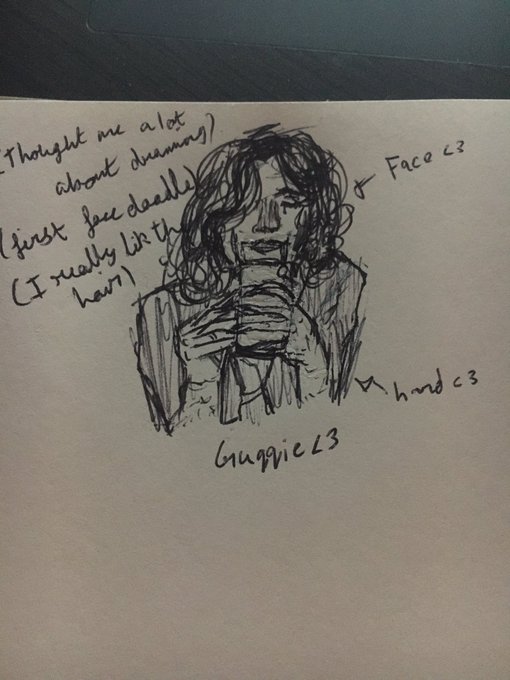 (Thought me a lot
about drawing)
(first face doodle)
(I really lik th
hair)
Face <3
hand <3
Guqqie <3